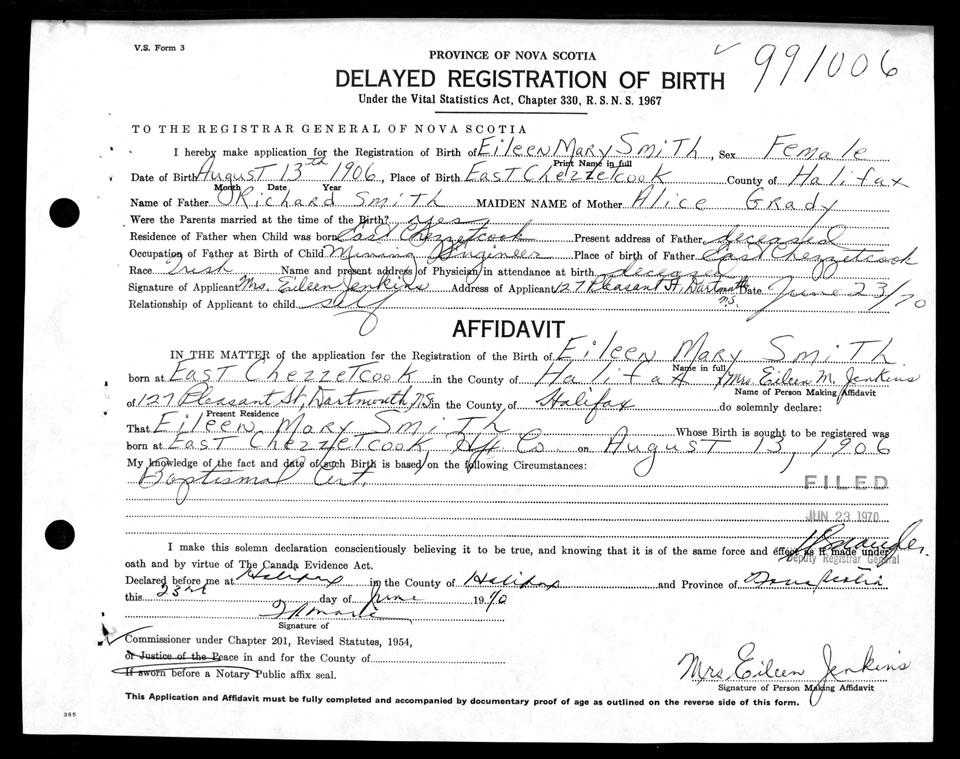 V.S. Form 3
PROVINCE OF NOVA SCOTIA
✓ 991006
DELAYED REGISTRATION OF BIRTH
Under the Vital Statistics Act, Chapter 330, R.S.N.S. 1967
TO THE REGISTRAR GENERAL OF NOVA SCOTIA
I hereby make application for the Registration of Birth of Eileen Mary Smith, Sex Female
Print Name in full
Date of Birth August 13th 1906, Place of Birth East Chezzetcook County of Halifax
Month Date Year
Name of Father Richard Smith MAIDEN NAME of Mother Alice Grady
Were the Parents married at the time of the Birth? yes
Residence of Father when Child was born East Chezzetcook Present address of Father deceased
Occupation of Father at Birth of Child Mining Engineer Place of birth of Father East Chezzetcook
Race Irish Name and present address of Physician in attendance at birth deceased
Signature of Applicant Mrs. Eileen Jenkins Address of Applicant 127 Pleasant St. Dartmouth N.S. Date June 23/70
Relationship of Applicant to child self
AFFIDAVIT
IN THE MATTER of the application for the Registration of the Birth of Eileen Mary Smith
Name in full
born at East Chezzetcook in the County of Halifax Mrs. Eileen M. Jenkins
Name of Person Making Affidavit
of 127 Pleasant St, Dartmouth, N.S. in the County of Halifax do solemnly declare:
Present Residence
That Eileen Mary Smith Whose Birth is sought to be registered was
born at East Chezzetcook, Hfx Co. on August 13, 1906
My knowledge of the fact and date of such Birth is based on the following Circumstances:
Baptismal Cert.
FILED
JUN 23 1970
I make this solemn declaration conscientiously believing it to be true, and knowing that it is of the same force and effect as if made under
Deputy Registrar General
oath and by virtue of The Canada Evidence Act.
Declared before me at Halifax in the County of Halifax and Province of Nova Scotia
this 23rd day of June 1970
Signature of
✓ Commissioner under Chapter 201, Revised Statutes, 1954,
or Justice of the Peace in and for the County of
If sworn before a Notary Public affix seal.
Mrs. Eileen Jenkins
Signature of Person Making Affidavit
This Application and Affidavit must be fully completed and accompanied by documentary proof of age as outlined on the reverse side of this form.
385